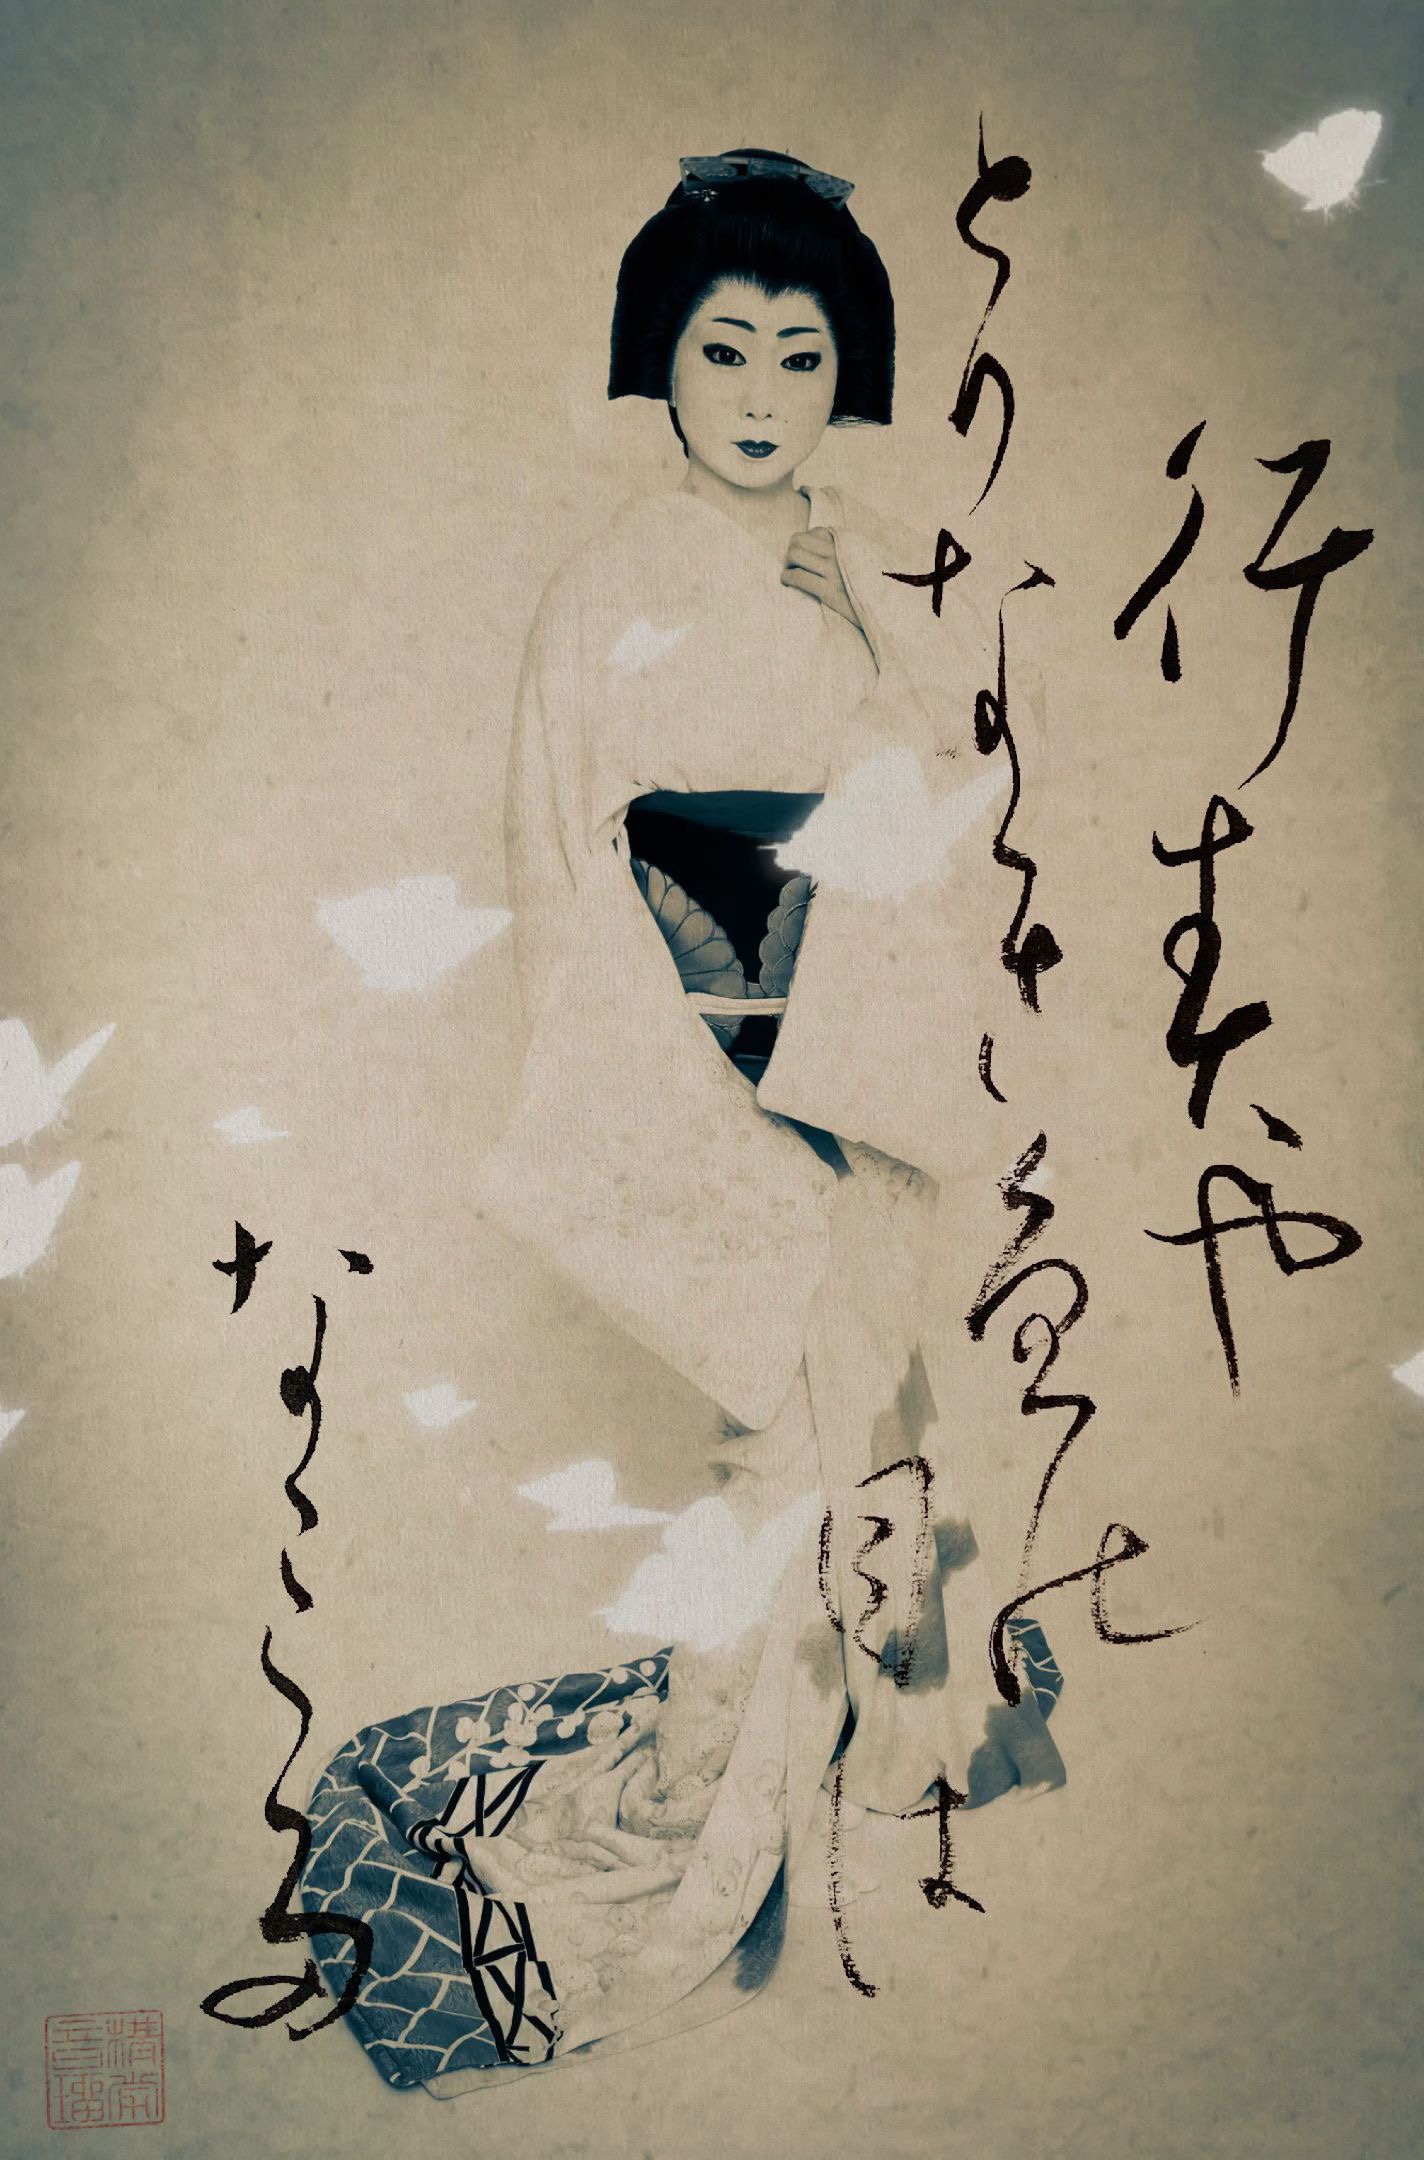 行春や
とりなき魚の
目は
なみた